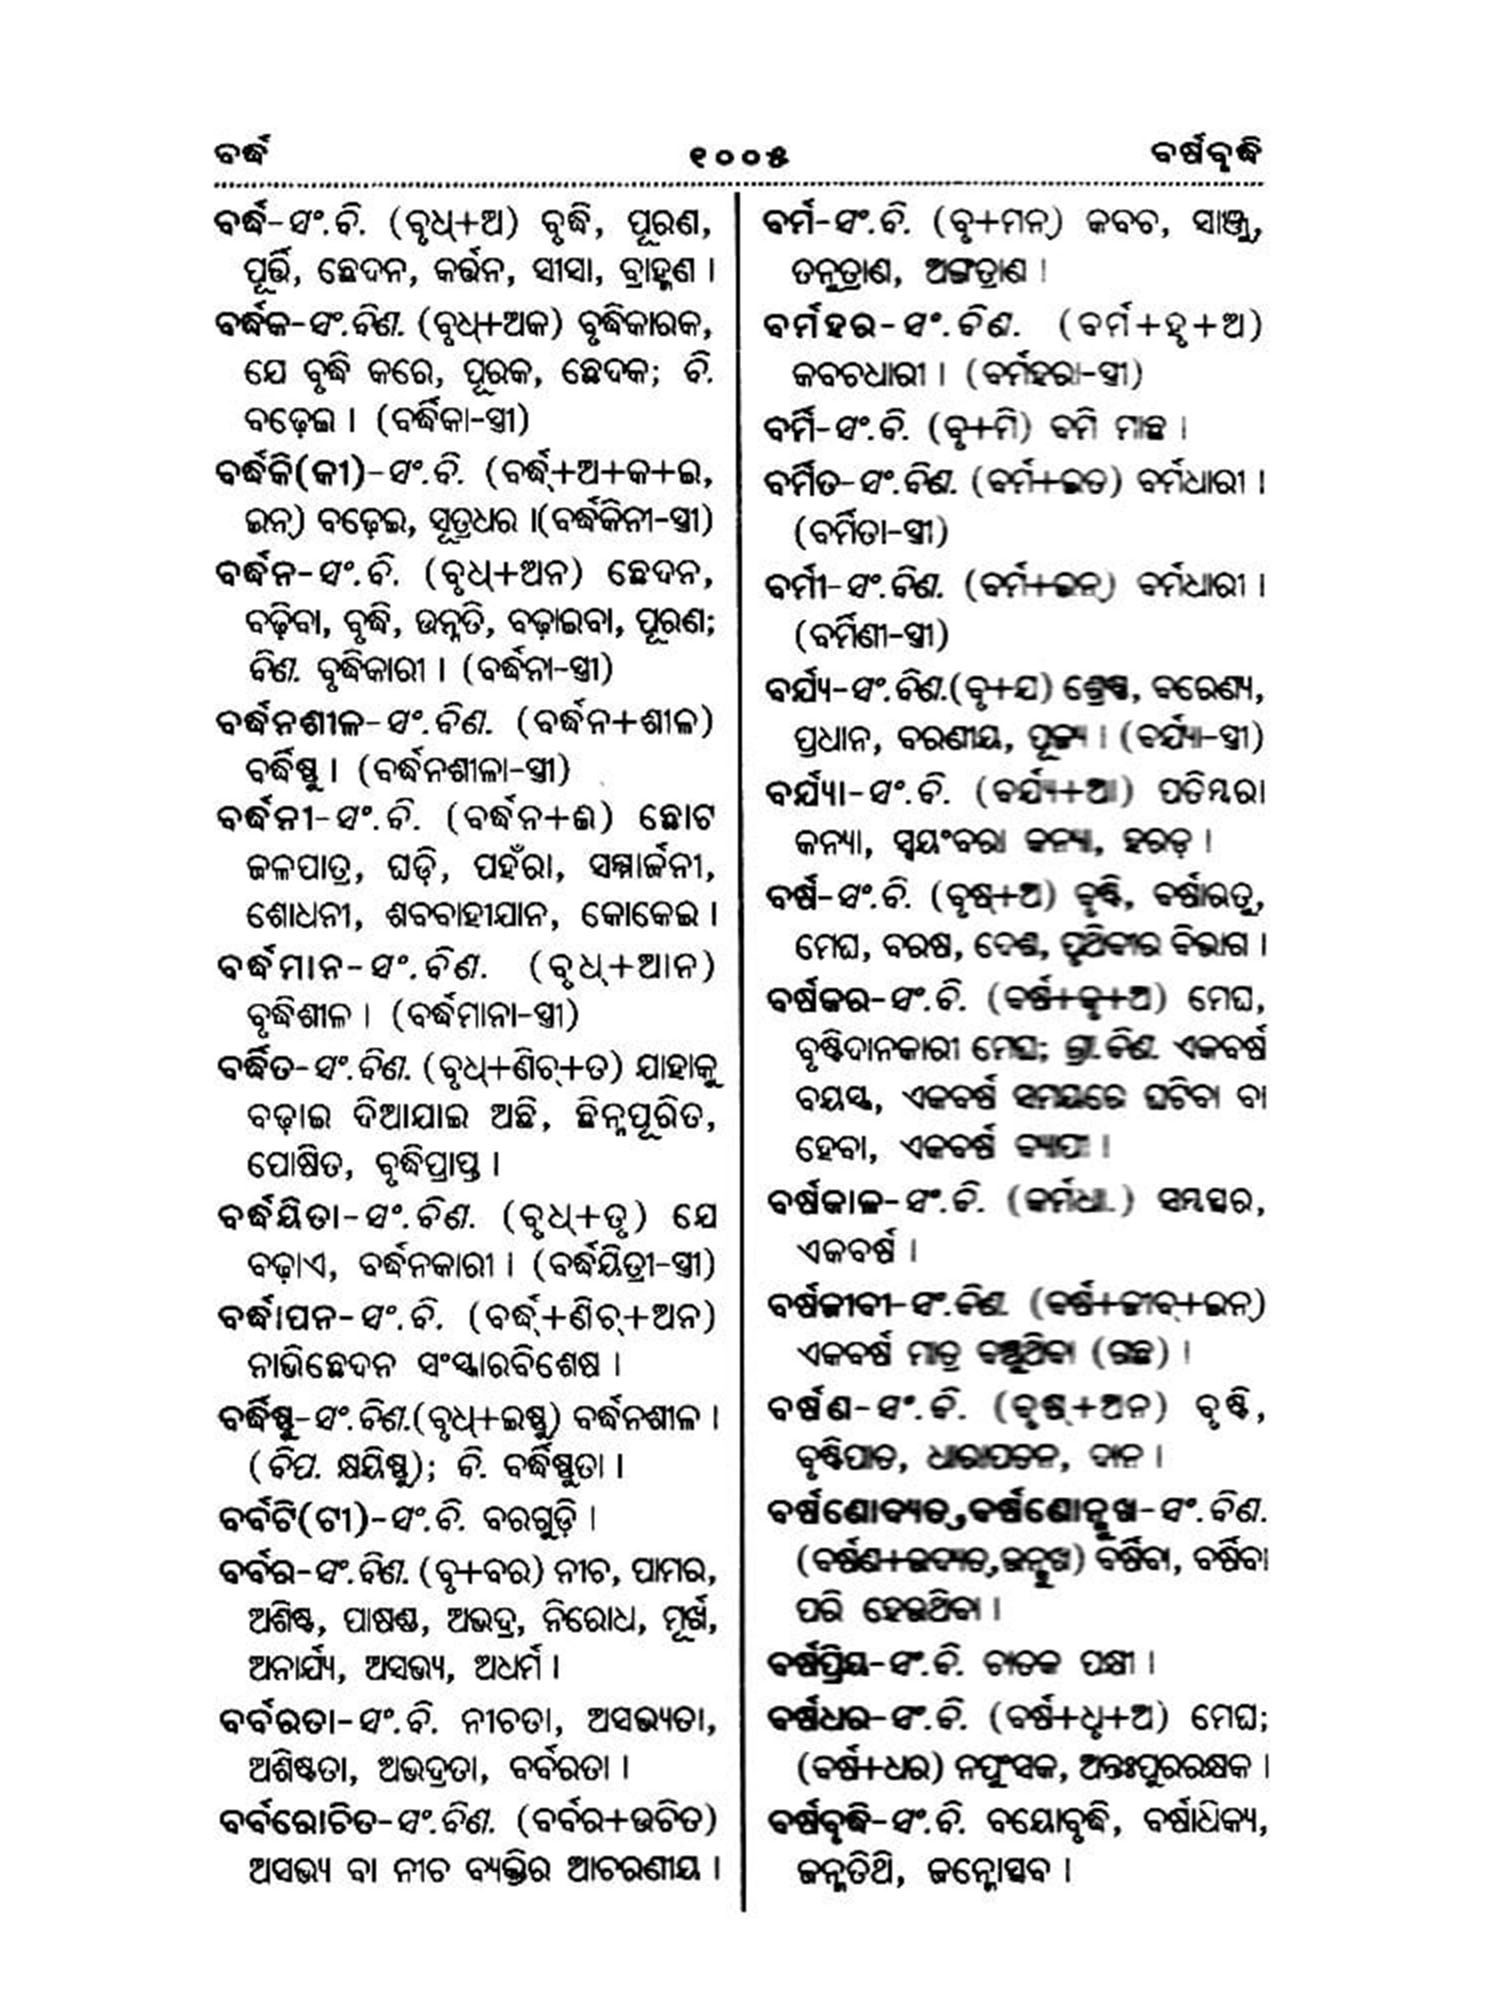 ବର୍ଦ୍ଧ ୧୦୦୫ ବର୍ଷବୃଦ୍ଧି
ବର୍ଦ୍ଧ-ସଂ.ବି. (ବୃଧ୍+ଅ) ବୃଦ୍ଧି, ପୂରଣ,
ପୂର୍ତ୍ତି, ଛେଦନ, କର୍ତ୍ତନ, ସୀସା, ବ୍ରାହ୍ମଣ ।
ବର୍ଦ୍ଧକ-ସଂ.ବିଣ. (ବୃଧ୍+ଅକ) ବୃଦ୍ଧିକାରକ,
ଯେ ବୃଦ୍ଧି କରେ, ପୂରକ, ଛେଦକ; ବି.
ବଢ଼େଇ । (ବର୍ଦ୍ଧିକା-ସ୍ତ୍ରୀ)
ବର୍ଦ୍ଧକି(କୀ)-ସଂ.ବି. (ବର୍ଦ୍ଧ୍+ଅ+କ+ଇ,
ଇନ୍) ବଢ଼େଇ, ସୂତ୍ରଧର ।(ବର୍ଦ୍ଧକିନୀ-ସ୍ତ୍ରୀ)
ବର୍ଦ୍ଧନ-ସଂ.ବି. (ବୃଧ୍+ଅନ) ଛେଦନ,
ବଢ଼ିବା, ବୃଦ୍ଧି, ଉନ୍ନତି, ବଢ଼ାଇବା, ପୂରଣ;
ବିଣ. ବୃଦ୍ଧିକାରୀ । (ବର୍ଦ୍ଧନା-ସ୍ତ୍ରୀ)
ବର୍ଦ୍ଧନଶୀଳ-ସଂ.ବିଣ. (ବର୍ଦ୍ଧନ+ଶୀଳ)
ବର୍ଦ୍ଧିଷ୍ଣୁ । (ବର୍ଦ୍ଧନଶୀଳା-ସ୍ତ୍ରୀ)
ବର୍ଦ୍ଧନୀ-ସଂ.ବି. (ବର୍ଦ୍ଧନ+ଈ) ଛୋଟ
ଜଳପାତ୍ର, ଘଡ଼ି, ପହଁରା, ସମ୍ମାର୍ଜନୀ,
ଶୋଧନୀ, ଶବବାହୀଯାନ, କୋକେଇ ।
ବର୍ଦ୍ଧମାନ-ସଂ.ବିଣ. (ବୃଧ୍+ଆନ)
ବୃଦ୍ଧିଶୀଳ । (ବର୍ଦ୍ଧମାନା-ସ୍ତ୍ରୀ)
ବର୍ଦ୍ଧିତ-ସଂ.ବିଣ. (ବୃଧ୍+ଣିଚ୍+ତ) ଯାହାକୁ
ବଢ଼ାଇ ଦିଆଯାଇ ଅଛି, ଛିନ୍ନପୂରିତ,
ପୋଷିତ, ବୃଦ୍ଧିପ୍ରାପ୍ତ ।
ବର୍ଦ୍ଧୟିତା-ସଂ.ବିଣ. (ବୃଧ୍+ତୃ) ଯେ
ବଢ଼ାଏ, ବର୍ଦ୍ଧନକାରୀ । (ବର୍ଦ୍ଧୟିତ୍ରୀ-ସ୍ତ୍ରୀ)
ବର୍ଦ୍ଧାପନ-ସଂ.ବି. (ବର୍ଦ୍ଧ୍+ଣିଚ୍+ଅନ)
ନାଭିଛେଦନ ସଂସ୍କାରବିଶେଷ ।
ବର୍ଦ୍ଧିଷ୍ଣୁ-ସଂ.ବିଣ.(ବୃଧ୍+ଇଷ୍ଣୁ) ବର୍ଦ୍ଧନଶୀଳ ।
(ବିପ. କ୍ଷୟିଷ୍ଣୁ); ବି. ବର୍ଦ୍ଧିଷ୍ଣୁତା ।
ବର୍ବଟି(ଟୀ)-ସଂ.ବି. ବରଗୁଡ଼ି ।
ବର୍ବର-ସଂ.ବିଣ. (ବୃ+ବର) ନୀଚ, ପାମର,
ଅଶିଷ୍ଟ, ପାଷଣ୍ଡ, ଅଭଦ୍ର, ନିରୋଧ, ମୂର୍ଖ,
ଅନାର୍ଯ୍ୟ, ଅସଭ୍ୟ, ଅଧର୍ମ ।
ବର୍ବରତା-ସଂ.ବି. ନୀଚତା, ଅସଭ୍ୟତା,
ଅଶିଷ୍ଟତା, ଅଭଦ୍ରତା, ବର୍ବରତା ।
ବର୍ବରୋଚିତ-ସଂ.ବିଣ. (ବର୍ବର+ଉଚିତ)
ଅସଭ୍ୟ ବା ନୀଚ ବ୍ୟକ୍ତିର ଆଚରଣୀୟ ।
ବର୍ମ-ସଂ.ବି. (ବୃ+ମନ୍) କବଚ, ସାଞ୍ଜୁ,
ତନୁତ୍ରାଣ, ଅଙ୍ଗତ୍ରାଣ ।
ବର୍ମହର-ସଂ.ବିଣ. (ବର୍ମ+ହୃ+ଅ)
କବଚଧାରୀ । (ବର୍ମହରା-ସ୍ତ୍ରୀ)
ବର୍ମି-ସଂ.ବି. (ବୃ+ମି) ବମି ମାଛ ।
ବର୍ମିତ-ସଂ.ବିଣ. (ବର୍ମ+ଇତ) ବର୍ମଧାରୀ ।
(ବର୍ମିତା-ସ୍ତ୍ରୀ)
ବର୍ମୀ-ସଂ.ବିଣ. (ବର୍ମ+ଇନ୍) ବର୍ମଧାରୀ ।
(ବର୍ମିଣୀ-ସ୍ତ୍ରୀ)
ବର୍ଯ୍ୟ-ସଂ.ବିଣ.(ବୃ+ଯ) ଶ୍ରେଷ୍ଠ, ବରେଣ୍ୟ,
ପ୍ରଧାନ, ବରଣୀୟ, ପୂଜ୍ୟ । (ବର୍ଯ୍ୟା-ସ୍ତ୍ରୀ)
ବର୍ଯ୍ୟା-ସଂ.ବି. (ବର୍ଯ୍ୟ+ଆ) ପତିମ୍ବରା
କନ୍ୟା, ସ୍ୱୟଂବରା କନ୍ୟା, ହରଡ଼ ।
ବର୍ଷ-ସଂ.ବି. (ବୃଷ୍+ଅ) ବୃଷ୍ଟି, ବର୍ଷାଋତୁ,
ମେଘ, ବରଷ, ଦେଶ, ପୃଥିବୀର ବିଭାଗ ।
ବର୍ଷକର-ସଂ.ବି. (ବର୍ଷ+କୃ+ଅ) ମେଘ,
ବୃଷ୍ଟିଦାନକାରୀ ମେଘ; ଗ୍ରା.ବିଣ. ଏକବର୍ଷ
ବୟସ୍କ, ଏକବର୍ଷ ସମୟରେ ଘଟିବା ବା
ହେବା, ଏକବର୍ଷ ବ୍ୟାପୀ ।
ବର୍ଷକାଳ-ସଂ.ବି. (କର୍ମଧା.) ସମ୍ବତ୍ସର,
ଏକବର୍ଷ ।
ବର୍ଷଜୀବୀ-ସଂ.ବିଣ. (ବର୍ଷ+ଜୀବ୍+ଇନ୍)
ଏକବର୍ଷ ମାତ୍ର ବଞ୍ଚୁଥିବା (ଗଛ) ।
ବର୍ଷଣ-ସଂ.ବି. (ବୃଷ୍+ଅନ) ବୃଷ୍ଟି,
ବୃଷ୍ଟିପାତ, ଧାରାପତନ, ଦାନ ।
ବର୍ଷଣୋଦ୍ୟତ,ବର୍ଷଣୋନ୍ମୁଖ-ସଂ.ବିଣ.
(ବର୍ଷଣ+ଉଦ୍ୟତ,ଉନ୍ମୁଖ) ବର୍ଷିବା, ବର୍ଷିବା
ପରି ହେଉଥିବା ।
ବର୍ଷପ୍ରିୟ-ସଂ.ବି. ଚାତକ ପକ୍ଷୀ ।
ବର୍ଷଧର-ସଂ.ବି. (ବର୍ଷ+ଧୃ+ଅ) ମେଘ;
(ବର୍ଷ+ଧର) ନପୁଂସକ, ଅନ୍ତଃପୁରରକ୍ଷକ ।
ବର୍ଷବୃଦ୍ଧି-ସଂ.ବି. ବୟୋବୃଦ୍ଧି, ବର୍ଷାଧିକ୍ୟ,
ଜନ୍ମତିଥି, ଜନ୍ମୋତ୍ସବ ।